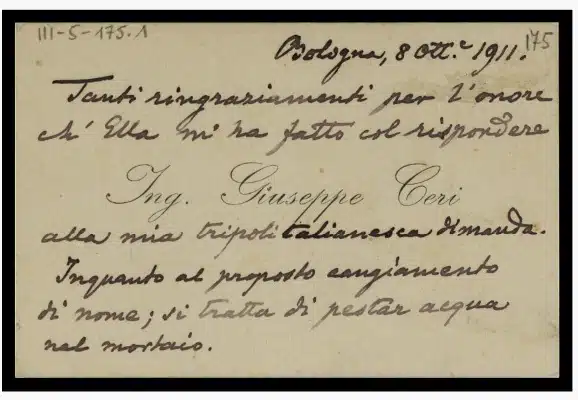 III-5-175.1
175
Bologna, 8 Ott.e 1911.
Tanti ringraziamenti per l'onore
ch' Ella mi ha fatto col rispondere
Ing. Giuseppe Ceri
alla mia tripolitalianesca dimanda.
Inquanto al proposto cangiamento
di nome; si tratta di pestar acqua
nel mortaio.